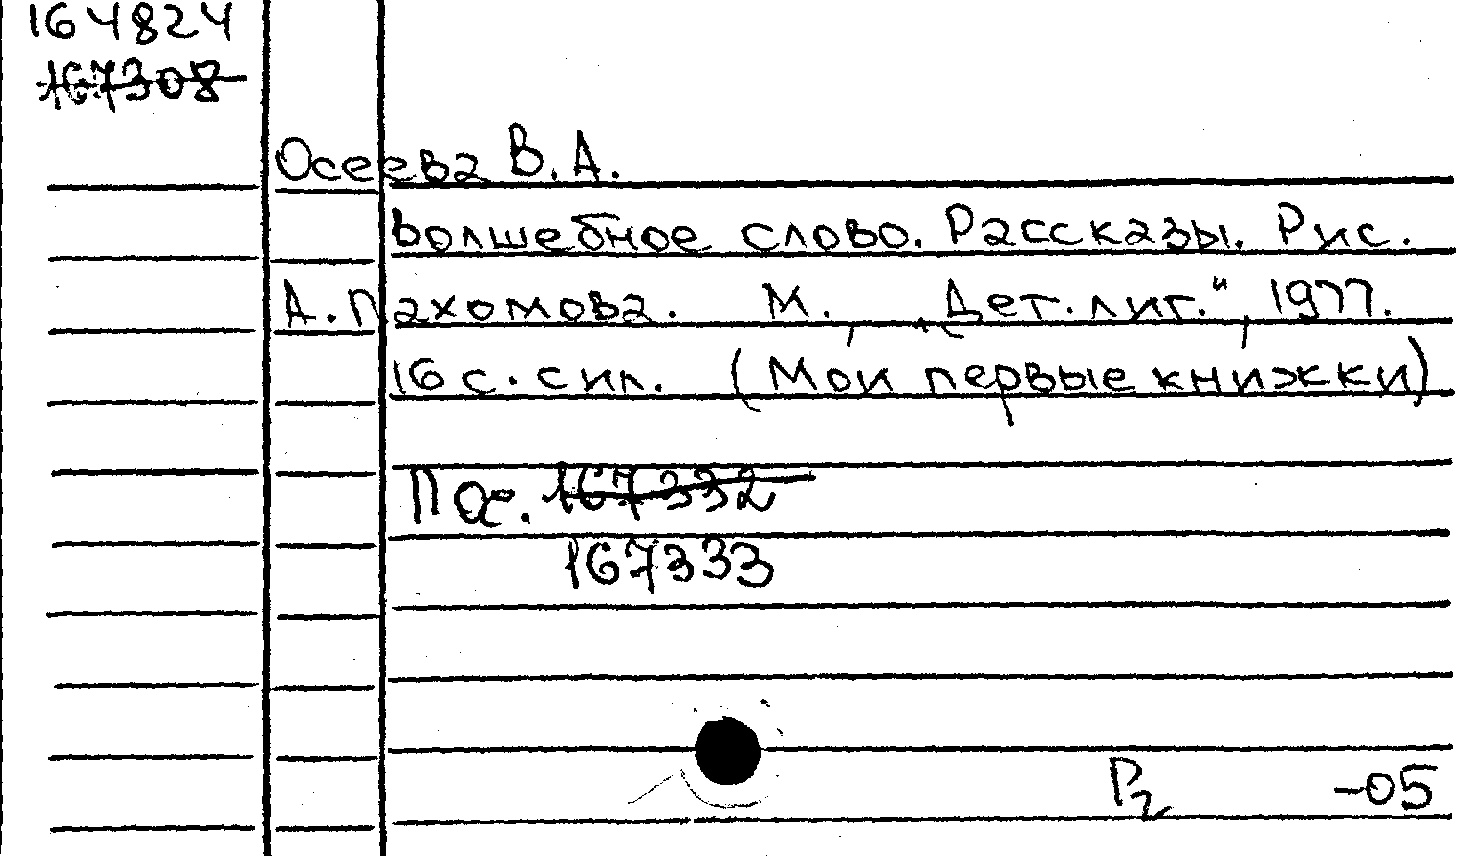 164824
167308
Осеева В.А.
Волшебное слово. Рассказы. Рис.
А. Пахомова. М., „Дет. лит.“, 1977.
16 с. с ил. (Мои первые книжки)
167332
167333
Р2 -05